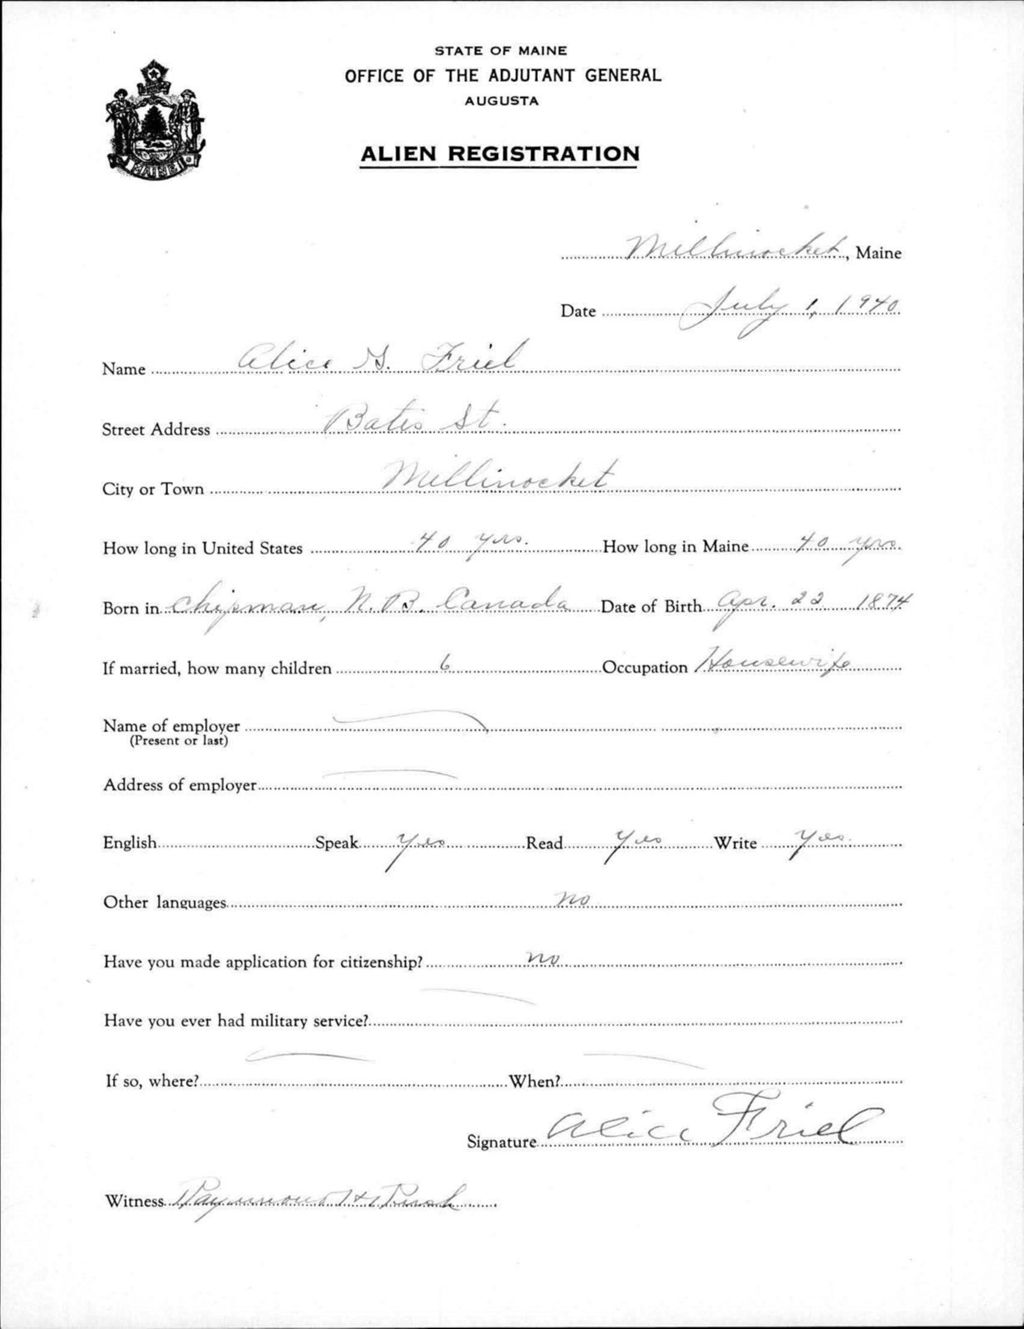 STATE OF MAINE
OFFICE OF THE ADJUTANT GENERAL
AUGUSTA
ALIEN REGISTRATION
MAINE
Millinocket, Maine
Date July 1, 1940
Name Alice G. Friel
Street Address Bates St.
City or Town Millinocket
How long in United States 40 yrs. How long in Maine 40 yrs.
Born in Chipman, N.B. Canada Date of Birth Apr. 22 1874
If married, how many children 6 Occupation Housewife
Name of employer
(Present or last)
Address of employer
English Speak Yes Read Yes Write Yes.
Other languages no
Have you made application for citizenship? no
Have you ever had military service?
If so, where? When?
Signature Alice Friel
Witness Raymond H